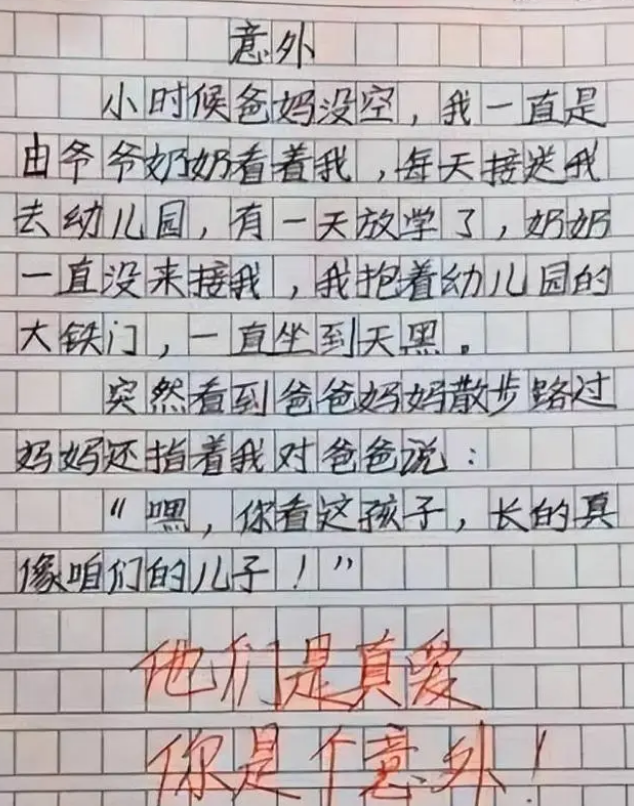 意外
小时候爸妈没空，我一直是
由爷爷奶奶看着我，每天接送我
去幼儿园，有一天放学了，奶奶
一直没来接我，我抱着幼儿园的
大铁门，一直坐到天黑。
突然看到爸爸妈妈散步路过
妈妈还指着我对爸爸说：
“嘿，你看这孩子，长的真
像咱们的儿子！”
他们是真爱
你是个意外！